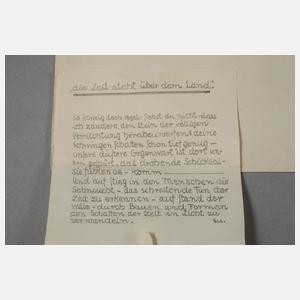 "die Zeit steht über dem Land".
so schweig doch Vogel. Siehst du nicht - dass
ich zaudere, den Stein der völligen
Vernichtung herabzuwerfen? deine
Schwingen schatten schon tief genug —
unsere düstere Gegenwart ist dort un-
ten gespürt - das drohende Schicksal -
Sie fühlen es - komm —
Und auf stieg in den Menschen die
Sehnsucht - das schreitende Tun der
Zeit zu erkennen - auf stand der
Wille - durch Bauen und Formen
den Schatten der Zeit in Licht zu
verwandeln.